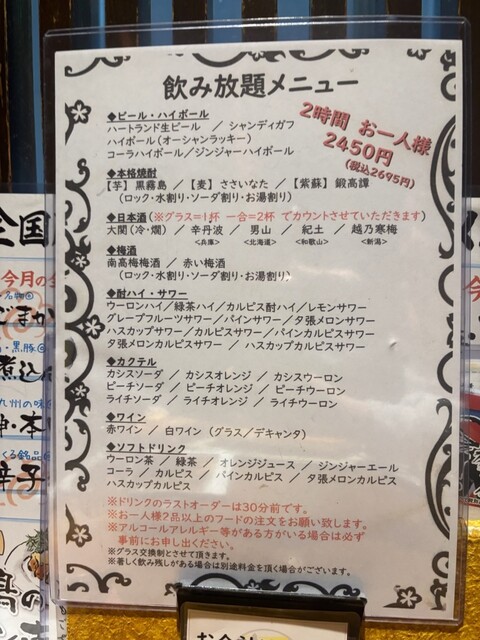 飲み放題メニュー
2時間 お一人様
2450円
(税込2695円)
◆ビール・ハイボール
ハートランド生ビール ／ シャンディガフ
ハイボール(オーシャンラッキー)
コーラハイボール／ジンジャーハイボール
◆本格焼酎
【芋】黒霧島 ／【麦】ささいなた ／【紫蘇】鍛高譚
(ロック・水割り・ソーダ割り・お湯割り)
◆日本酒(※グラス=1杯 一合=2杯 でカウントさせていただきます)
大関(冷・燗) ／ 辛丹波 ／ 男山 ／ 紀土 ／ 越乃寒梅
<兵庫> <北海道> <和歌山> <新潟>
◆梅酒
南高梅梅酒 ／ 赤い梅酒
(ロック・水割り・ソーダ割り・お湯割り)
◆酎ハイ・サワー
ウーロンハイ／緑茶ハイ／カルピス酎ハイ／レモンサワー
グレープフルーツサワー／パインサワー／夕張メロンサワー
ハスカップサワー／カルピスサワー／パインカルピスサワー
夕張メロンカルピスサワー ／ ハスカップカルピスサワー
◆カクテル
カシスソーダ ／ カシスオレンジ ／ カシスウーロン
ピーチソーダ ／ ピーチオレンジ ／ ピーチウーロン
ライチソーダ ／ ライチオレンジ ／ ライチウーロン
◆ワイン
赤ワイン ／ 白ワイン (グラス／デキャンタ)
◆ソフトドリンク
ウーロン茶 ／ 緑茶 ／ オレンジジュース ／ ジンジャーエール
コーラ ／ カルピス ／ パインカルピス ／ 夕張メロンカルピス
ハスカップカルピス
※ドリンクのラストオーダーは30分前です。
※お一人様2品以上のフードの注文をお願い致します。
※アルコールアレルギー等がある方がいる場合は必ず
事前にお申し出ください。
※グラス交換制とさせて頂きます。
※著しく飲み残しがある場合は別途料金を頂く場合がございます。
全国
今月の